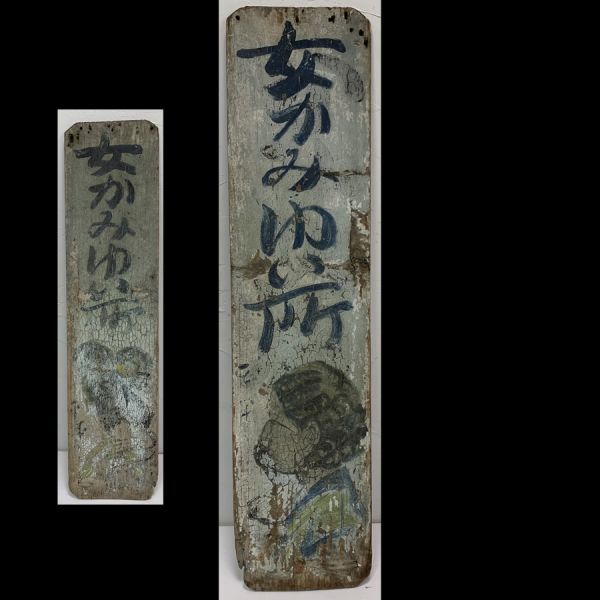 女かみゆい所
女かみゆい所